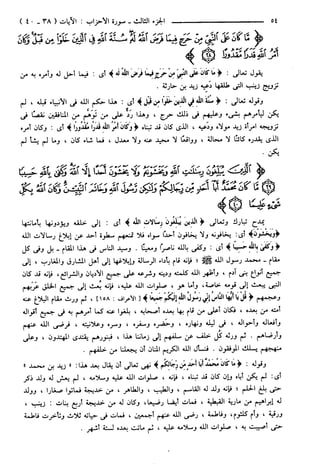 ٥٤ الجزء الثالث - سورة الأحزاب: الآيات (٣٨ - ٤٠)
مَّا كَانَ عَلَى النَّبِيِّ مِنْ حَرَجٍ فِيمَا فَرَضَ اللَّهُ لَهُ سُنَّةَ اللَّهِ فِي الَّذِينَ خَلَوْا مِن قَبْلُ وَكَانَ
أَمْرُ اللَّهِ قَدَرًا مَّقْدُورًا
يقول تعالى: ﴿مَا كَانَ عَلَى النَّبِيِّ مِنْ حَرَجٍ فِيمَا فَرَضَ اللَّهُ لَهُ﴾ أي: فيما أحل له وأمره به من
تزويج زينب التي طلقها دعيه زيد بن حارثة.
وقوله تعالى: ﴿سُنَّةَ اللَّهِ فِي الَّذِينَ خَلَوْا مِن قَبْلُ﴾ أي: هذا حكم الله في الأنبياء قبله، لم
يكن ليأمرهم بشيء وعليهم في ذلك حرج، وهذا رد على من توهم من المنافقين نقصا في
تزويجه امرأة زيد مولاه ودعيه، الذي كان قد تبناه ﴿وَكَانَ أَمْرُ اللَّهِ قَدَرًا مَّقْدُورًا﴾ أي: وكان أمره
الذي يقدره كائنا لا محالة، وواقعا لا محيد عنه ولا معدل، فما شاء كان، وما لم يشأ لم
يكن.
الَّذِينَ يُبَلِّغُونَ رِسَالَاتِ اللَّهِ وَيَخْشَوْنَهُ وَلَا يَخْشَوْنَ أَحَدًا إِلَّا اللَّهَ وَكَفَى بِاللَّهِ حَسِيبًا
مَّا كَانَ مُحَمَّدٌ أَبَا أَحَدٍ مِّن رِّجَالِكُمْ وَلَكِن رَّسُولَ اللَّهِ وَخَاتَمَ النَّبِيِّينَ وَكَانَ اللَّهُ بِكُلِّ
شَيْءٍ عَلِيمًا
يمدح تبارك وتعالى ﴿الَّذِينَ يُبَلِّغُونَ رِسَالَاتِ اللَّهِ﴾ أي: إلى خلقه ويؤدونها بأمانتها
﴿وَيَخْشَوْنَهُ﴾ أي: يخافونه ولا يخافون أحدا سواه فلا تمنعهم سطوة أحد عن إبلاغ رسالات الله
﴿وَكَفَى بِاللَّهِ حَسِيبًا﴾ أي: وكفى بالله ناصرا ومعينا. وسيد الناس في هذا المقام - بل وفي كل
مقام - محمد رسول الله ﷺ؛ فإنه قام بأداء الرسالة وإبلاغها إلى أهل المشارق والمغارب، إلى
جميع أنواع بني آدم، وأظهر الله كلمته ودينه وشرعه على جميع الأديان والشرائع، فإنه قد كان
النبي يبعث إلى قومه خاصة، وأما هو، صلوات الله عليه، فإنه بعث إلى جميع الخلق عربهم
وعجمهم ﴿قُلْ يَا أَيُّهَا النَّاسُ إِنِّي رَسُولُ اللَّهِ إِلَيْكُمْ جَمِيعًا﴾ [الأعراف: ١٥٨]، ثم ورث مقام البلاغ عنه
أمته من بعده، فكان أعلى من قام بها بعده أصحابه، بلغوا عنه كما أمرهم به في جميع أقواله
وأفعاله وأحواله، في ليله ونهاره، وحضره وسفره، وسره وعلانيته، فرضي الله عنهم
وأرضاهم. ثم ورثه كل خلف عن سلفهم إلى زماننا هذا، فبنورهم يقتدي المهتدون، وعلى
منهجهم يسلك الموفقون. فنسأل الله الكريم المنان أن يجعلنا من خلفهم.
وقوله: ﴿مَّا كَانَ مُحَمَّدٌ أَبَا أَحَدٍ مِّن رِّجَالِكُمْ﴾ نهى تعالى أن يقال بعد هذا: « زيد بن محمد »
أي: لم يكن أباه وإن كان قد تبناه، فإنه، صلوات الله عليه وسلامه، لم يعش له ولد ذكر
حتى بلغ الحلم؛ فإنه ولد له القاسم، والطيب، والطاهر، من خديجة فماتوا صغارا، وولد
له إبراهيم من مارية القبطية، فمات أيضا رضيعا، وكان له من خديجة أربع بنات: زينب،
ورقية، وأم كلثوم، وفاطمة، رضي الله عنهم أجمعين، فمات في حياته ثلاث وتأخرت فاطمة
حتى أصيبت به، صلوات الله وسلامه عليه، ثم ماتت بعده لستة أشهر.